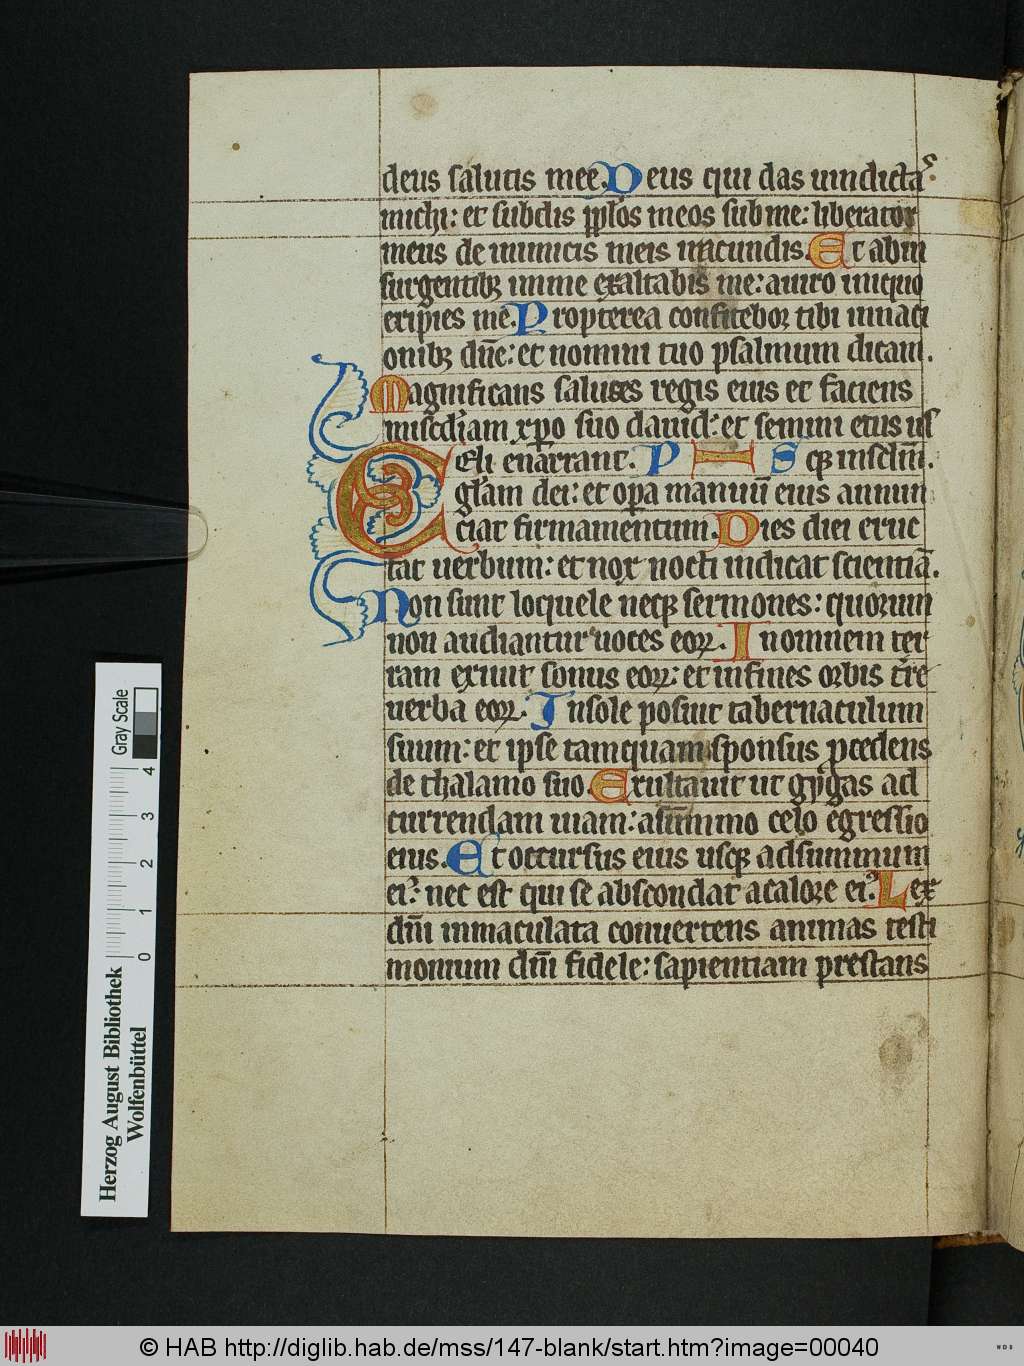 deus salutis meę. Deus qui das uindictāˢ
michi: et subdis pplos meos sub me: liberator
meus de inimicis meis iracundis. Et ab in
surgentibꝫ in me exaltabis me: a uiro iniquo
eripies me. Propterea confitebor tibi in naci
onibꝫ dn̄e: et nomini tuo psalmum dicam.
Magnificans salutes regis eius et faciens
misc̄diam xp̄o suo dauid: et semini eius usꝰ
Celi enarrant. P H S qꝫ in sclm̄.
gl̄am dei: et oꝑa manuū eius annun
ciat firmamentum. Dies diei eruc
tat uerbum: et nox nocti indicat scientiā.
Non sunt loquele neqꝫ sermones: quorum
non audiantur uoces eoꝝ. In omnem ter
ram exiuit sonus eoꝝ: et in fines orbis tr̄e
uerba eoꝝ. In sole posuit tabernaculum
suum: et ipse tamquam sponsus ꝓcedens
de thalamo suo. Exultauit ut gygas ad
currendam uiam: a sūmmo celo egressio
eius. Et occursus eius usqꝫ ad summum
eiꝰ: nec est qui se abscondat a calore eiꝰ. Lex
dn̄i inmaculata conuertens animas testi
monium dn̄i fidele: sapientiam prestans
Gray Scale
0 1 2 3 4
Herzog August Bibliothek
Wolfenbüttel
© HAB http://diglib.hab.de/mss/147-blank/start.htm?image=00040